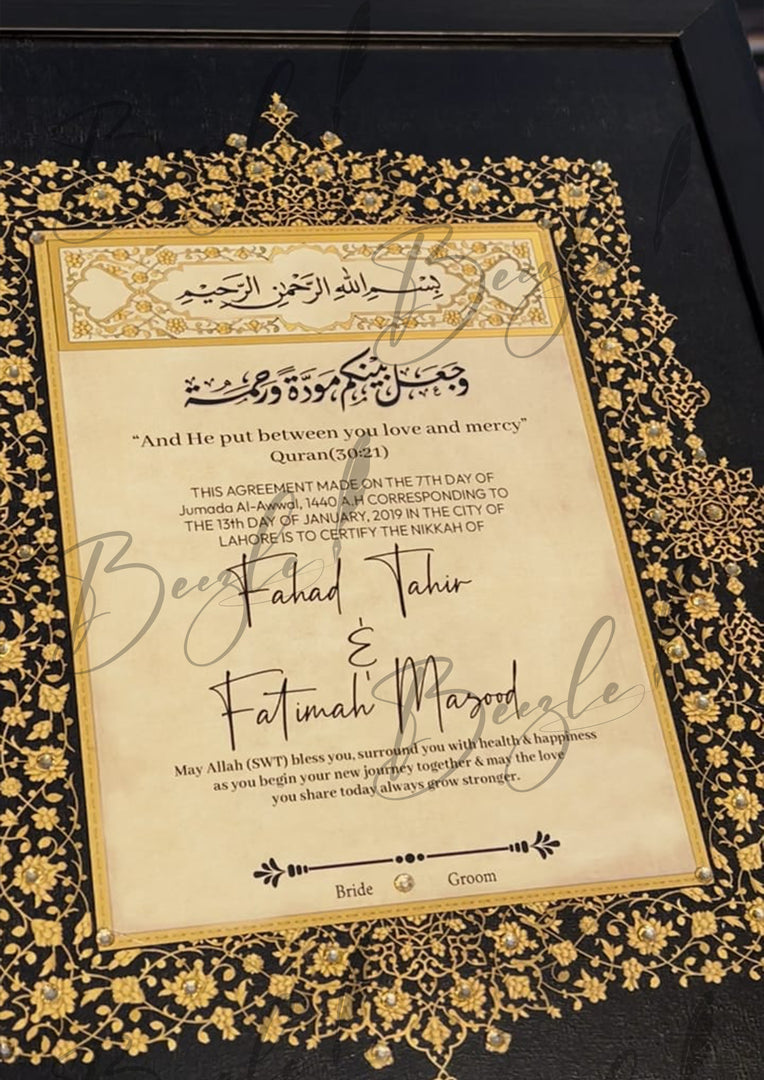 بِسْمِ اللهِ الرَّحْمٰنِ الرَّحِيْمِ
وَجَعَلَ بَيْنَكُم مَوَدَّةً وَرَحْمَةً
“And He put between you love and mercy”
Quran(30:21)
THIS AGREEMENT MADE ON THE 7TH DAY OF
Jumada Al-Awwal, 1440 A.H CORRESPONDING TO
THE 13th DAY OF JANUARY, 2019 IN THE CITY OF
LAHORE IS TO CERTIFY THE NIKKAH OF
Fahad Tahir
&
Fatimah Masood
May Allah (SWT) bless you, surround you with health & happiness
as you begin your new journey together & may the love
you share today always grow stronger.
Bride Groom
Beezle
Beezle
Beezle
Beezle
Beezle